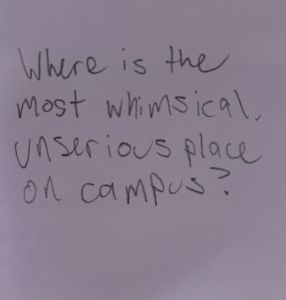 Where is the
most whimsical,
unserious place
on campus?